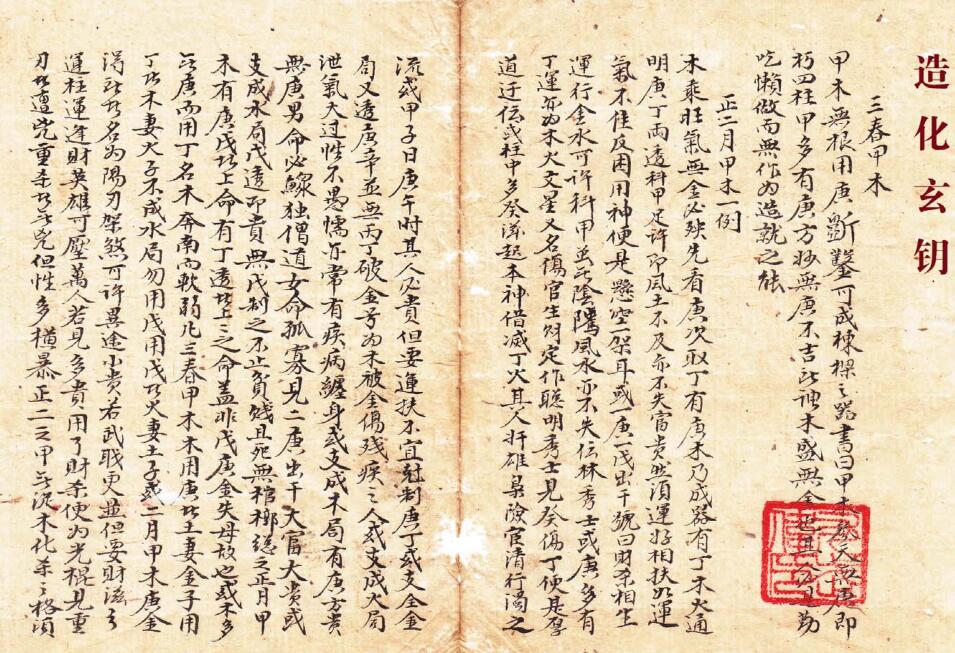 造化玄钥
三春甲木
甲木無根用庚斵鑿可成棟樑之器書曰甲木無庚即
朽四柱甲多有庚方妙無庚不吉木盛無金勤
吃懶做而無作為造就之能
正二月甲木一例
木乘旺氣無金必殃先看庚次取丁有庚木乃成器有丁木火通
明庚丁兩透科甲足許即風土不及亦不失富贵然須運好相扶如運
氣不佳反困用神便是懸空一架耳或一庚一戊出干號曰財杀相生
運行金水可許科甲虽陰騭風水亦不失林秀士或庚多有
丁運亦为木火文星又名傷官生財定作聰明秀士見癸傷丁便是厚
道迂或柱中多癸滋起木神借滅丁火其人奸雄枭險官清行濁之
流或甲子日庚午时其人必貴但要運扶不宜尅制庚丁或支金
局又透庚辛並無丙丁破金号为木被金傷残疾之人或支成火局
泄氣太过性不愚懦亦常有疾病纏身或支成木局有庚方贵
無庚男命必鰥独僧道女命孤寡見二庚出干大富大贵或
支成水局戊透即貴無戊制之不止貧贱且死無棺槨總之正月甲
木有庚戊者上命有丁透者上之命盖非戊庚金失母故也或木多
無庚而用丁名木奔南而軟弱凡三春甲木木用庚者土妻金子用
丁者木妻火子不成水局勿用戊用戊者火妻土子或二月甲木庚金
得所者名为陽刃架煞可許異途小贵右武職更並但要財滋
運柱運逢財英雄可壓萬人若見多貴用了財杀便为光棍見重
刃者遭凶重杀者凶但性多横暴正二之甲木化杀之格须